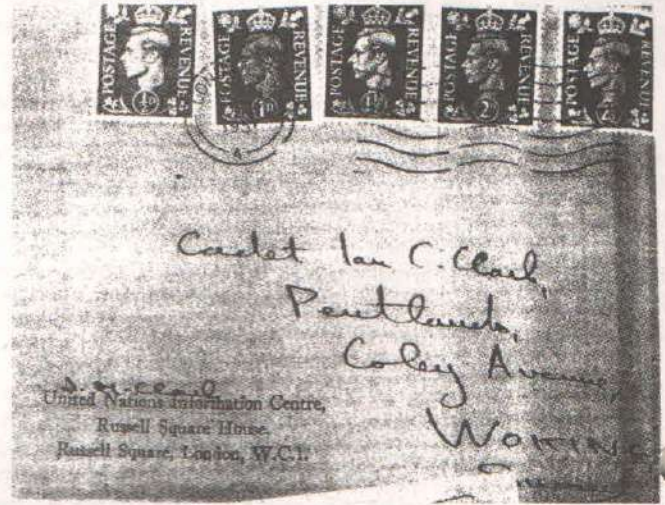 POSTAGE REVENUE POSTAGE REVENUE POSTAGE REVENUE POSTAGE REVENUE POSTAGE REVENUE
½D 1D 2D
Cadet Ian C. Clark,
Pentlands,
Coley Avenue,
WOKING
United Nations Information Centre,
Russell Square House,
Russell Square, London, W.C.1.